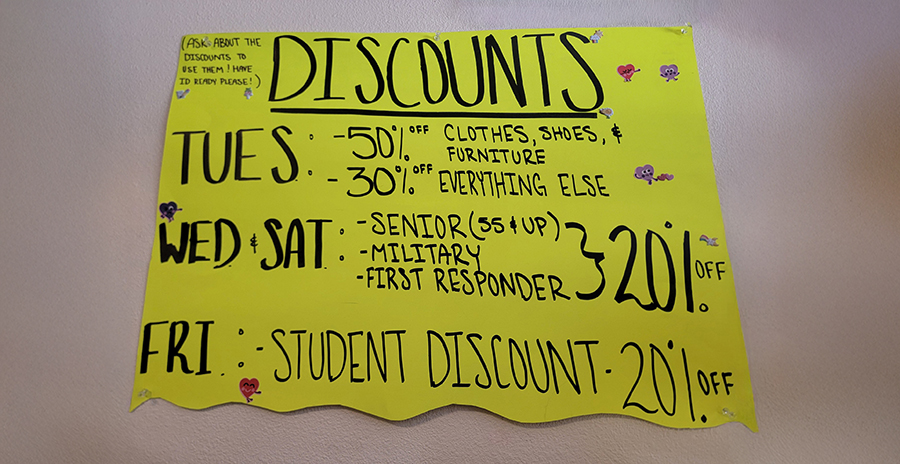 (ASK ABOUT THE
DISCOUNTS TO
USE THEM! HAVE
ID READY PLEASE!)
DISCOUNTS
TUES: -50% OFF CLOTHES, SHOES, &
FURNITURE
-30% OFF EVERYTHING ELSE
WED & SAT: -SENIOR (55 & UP)
-MILITARY
-FIRST RESPONDER } 20% OFF
FRI: -STUDENT DISCOUNT - 20% OFF